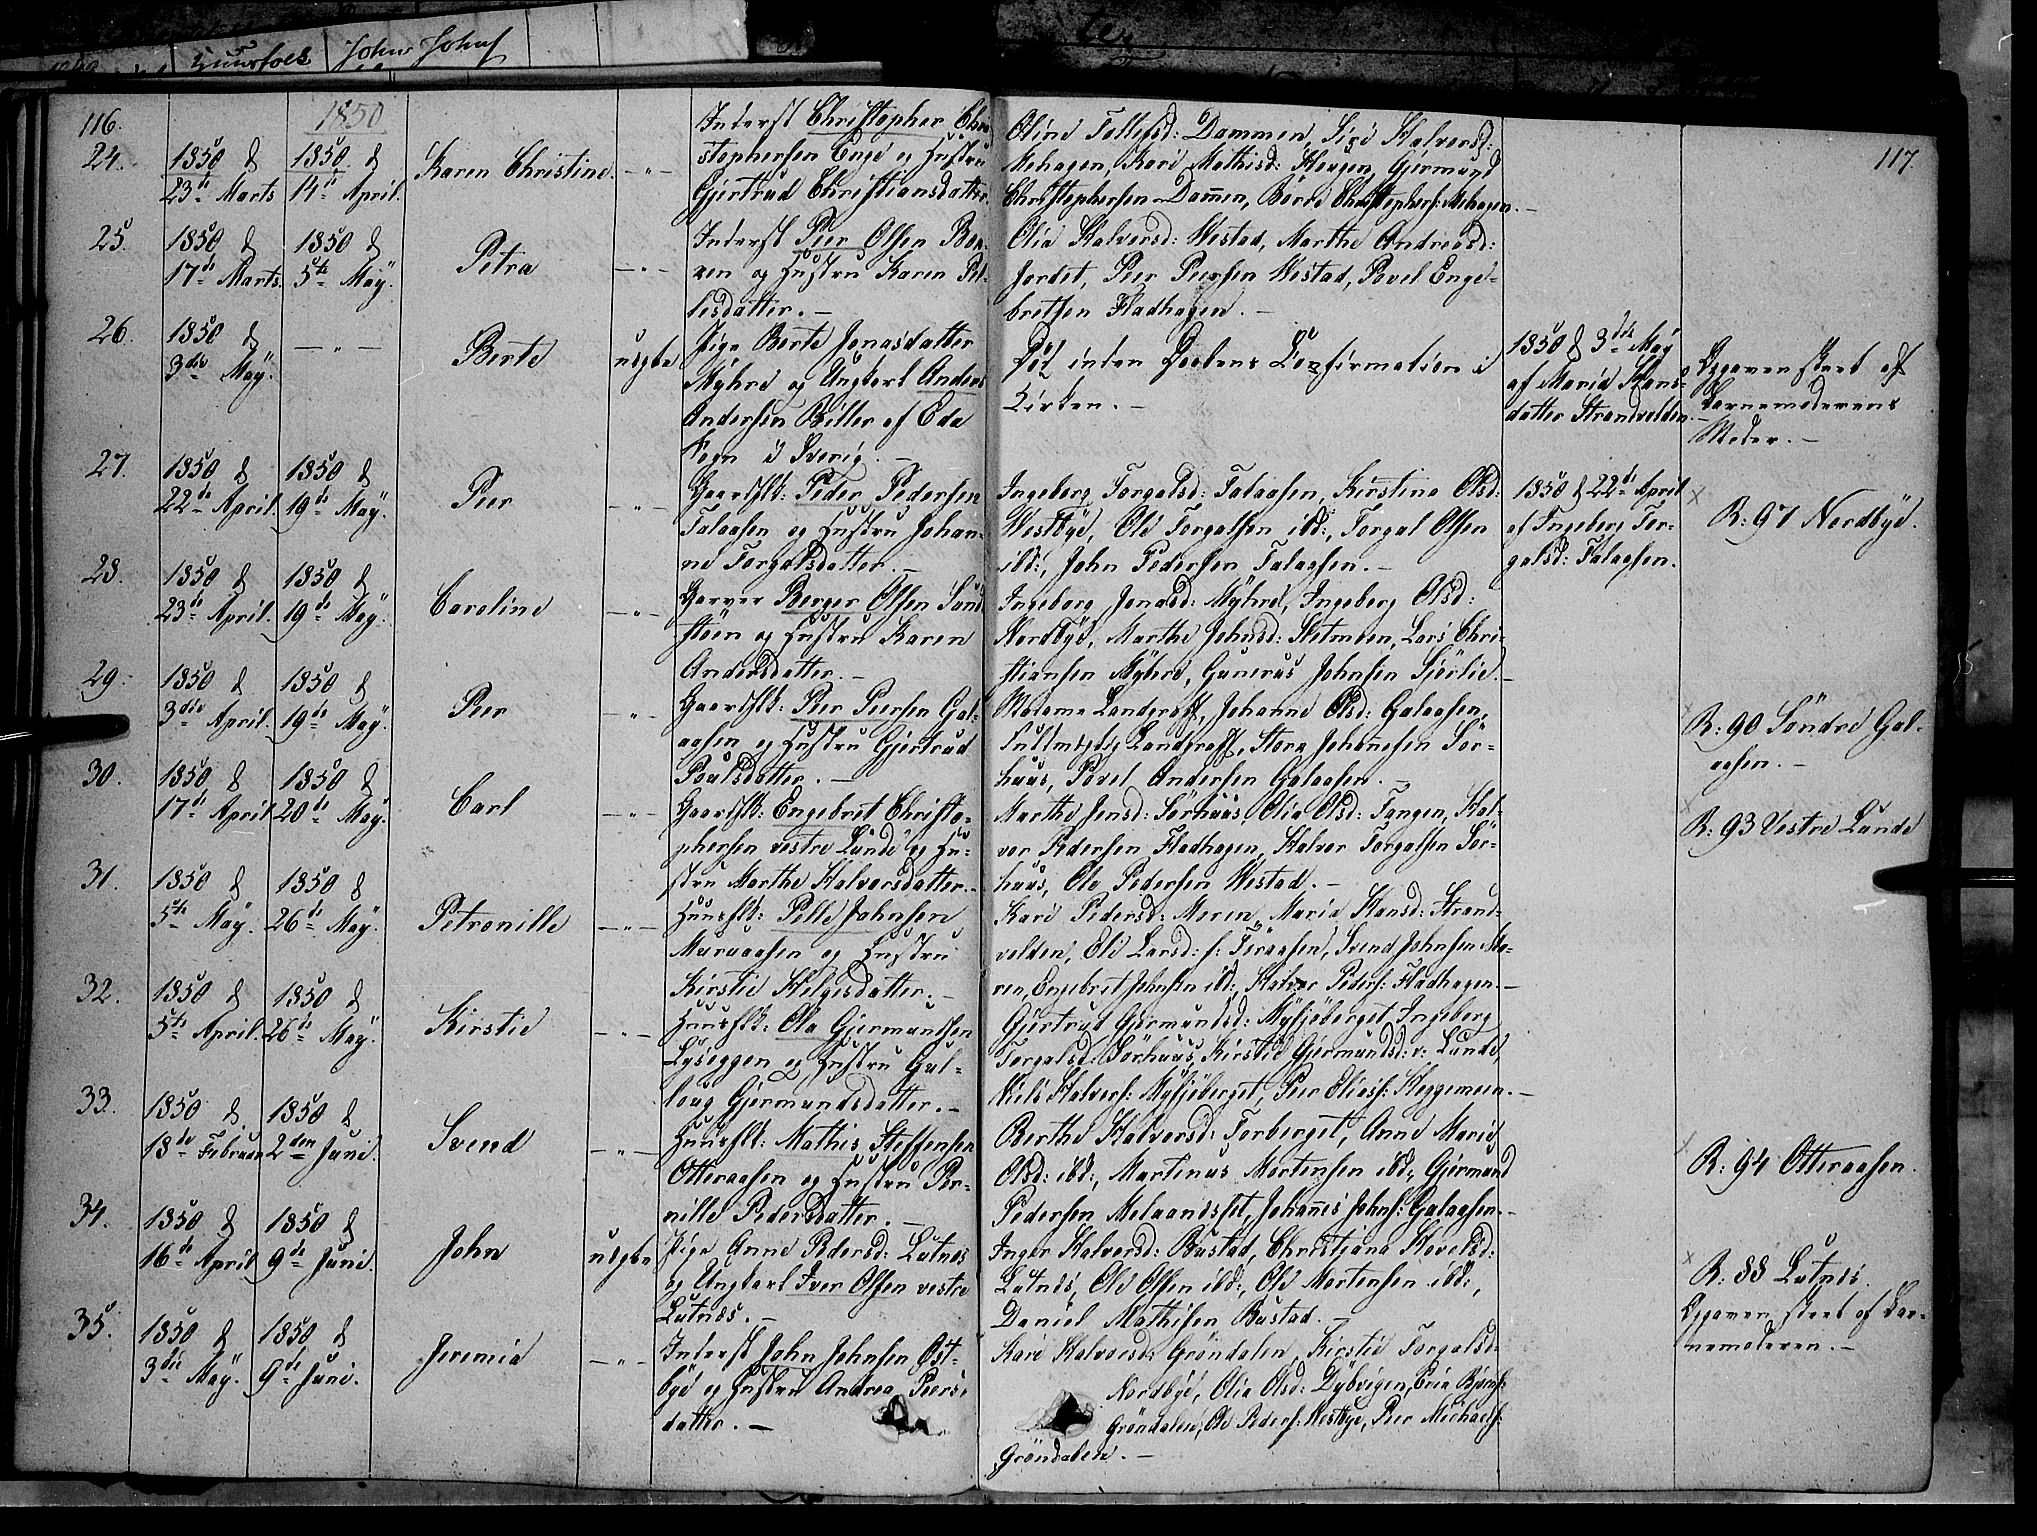 Huusfolk John Johns
116.
1850
117.
24.
1850 d
23de Marts
1850 d
14de April.
Karen Christine.
Inderst Christopher Chri-
stophersen Enge og Hustru
Gjertrud Christiansdatter.
Oline Tollefsd: Dammen, Siri Halvorsd:
Mehagen, Kari Mathisd: Haugen, Gjermund
Christophersen Dammen, Børre Christophers: Mehagen.
25.
1850 d
17de Marts.
1850 d
5te Maÿ.
Petra
Inderst Peer Olsen
og Hustru Karen Pel-
lesdatter.
Olia Halvorsd: Westad, Marthe Andreasd:
Jordet, Peer Peersen Westad, Povel Enge-
bretsen Fladhagen.
26.
1850 d
3die Maÿ.
Berte
uægte
Pige Berte Jonasdatter
Myhre og Ungkarl Anders
Andersen Bitter af Eda
Sogn i Sverig.
Død inden Daabens Confirmation i
Kirken.
1850 d 3die Maÿ
af Maria Hans-
datter Strandvolden.
Opgaven skeet af
Barnemoderens
Moder.
27.
1850 d
22de April.
1850 d
19de Maÿ.
Peer
Gaardfolk: Peder Pedersen
Talaasen og Hustru Johan-
ne Torgalsdatter.
Ingeborg Torgalsd: Talaasen, Kirstine Olsd:
Westbye, Ole Torgalsen ibd:, Torgal Olsen
ibd:, John Pedersen Talaasen.
1850 d 22de April
af Ingeborg Tor-
galsd: Talaasen.
R: 97 Nordbye.
28.
1850 d
23de April.
1850 d
19de Maÿ.
Caroline
Garver Berger Olsen Sund-
støen og Hustru Karen
Andersdatter.
Ingeborg Jonasd: Myhre, Ingeborg Olsd:
Nordbye, Marthe Johnsd: Sketmoen, Lars Chri-
stiansen Myhre, Gunerus Johnsen Sjørlie.
29.
1850 d
3die April.
1850 d
19de Maÿ.
Peer
Gaardfolk: Peer Peersen Gal-
aasen og Hustru Gjertrud
Poulsdatter.
Madame Landgraff, Johanne Olsd: Galaasen,
Fuldmægtig Landgraff, Stora Johannesen Sør-
huus, Povel Andersen Galaasen.
R: 90 Søndre Gal-
aasen.
30.
1850 d
17de April
1850 d
20de Maÿ.
Carl
Gaardfolk: Engebret Christo-
phersen vestre Lunde og Hu-
stru Marthe Halvorsdatter.
Marthe Jensd: Sørhuus, Olia Olsd: Tangen, Hal-
vor Pedersen Fladhagen, Halvor Torgalsen Sør-
huus, Ole Pedersen Westad.
R: 93 Vestre Lunde
31.
1850 d
5te Maÿ.
1850 d
26de Maÿ.
Petronille
Huusfolk: Pelle Johnsen
Muruaasen og Hustru
Kirstie Helgesdatter.
Kari Pedersd: Moren, Maria Hansd: Strand-
volden, Eli Larsd: f:Føraasen, Svend Johnsen Mo-
ren, Engebret Johnsen ibd:, Halvor Peders: Fladhagen.
32.
1850 d
5te April.
1850 d
26de Maÿ.
Kirstie
Huusfolk: Ola Gjermundsen
Lyseggen og Hustru Gul-
loug Gjermundsdatter.
Gjertrud Gjermundsd: Myhjeberget, Ingeborg
Torgalsd: Sørhuus, Kirstie Gjermundsd: v: Lunde
Niels Halvors: Myhjeberget, Peer Elias: Heggemoen.
33.
1850 d
18de Februar
1850 d
2den Juni.
Svend
Huusfolk: Mathis Steffensen
Otteraasen og Hustru Per-
nille Pedersdatter.
Berthe Halvorsd: Torberget, Anne Marie
Olsd: ibd:, Martinus Mortensen ibd:, Gjermund
Pedersen Melaandsset, Johannes Johns: Galaasen.
R: 94 Otteraasen.
34.
1850 d
16de April
1850 d
9de Juni.
John
uægte
Pige Anne Pedersd: Lutnes
og Ungkarl Iver Olsen vestre
Lutnes.
Inger Halvorsd: Bustad, Christjana Hovelsd:
Lutnes, Ole Olsen ibd:, Ole Mortensen ibd:,
Daniel Mathisen Bustad.
R: 88 Lutnes.
Opgaven skeet af Bar-
nemoderen.
35.
1850 d
3die Maÿ.
1850 d
9de Juni.
Jeremia
Inderst John Johnsen Øst-
bye og Hustru Andrea Peers-
datter.
Kari Halvorsd: Grøndalen, Kirstie Torgalsd:
Nordbye, Olia Olsd: Dybvigen, Eria Bjørns:
Grøndalen, Ole Peders: Westbye, Peer Michaels:
Grøndalen.